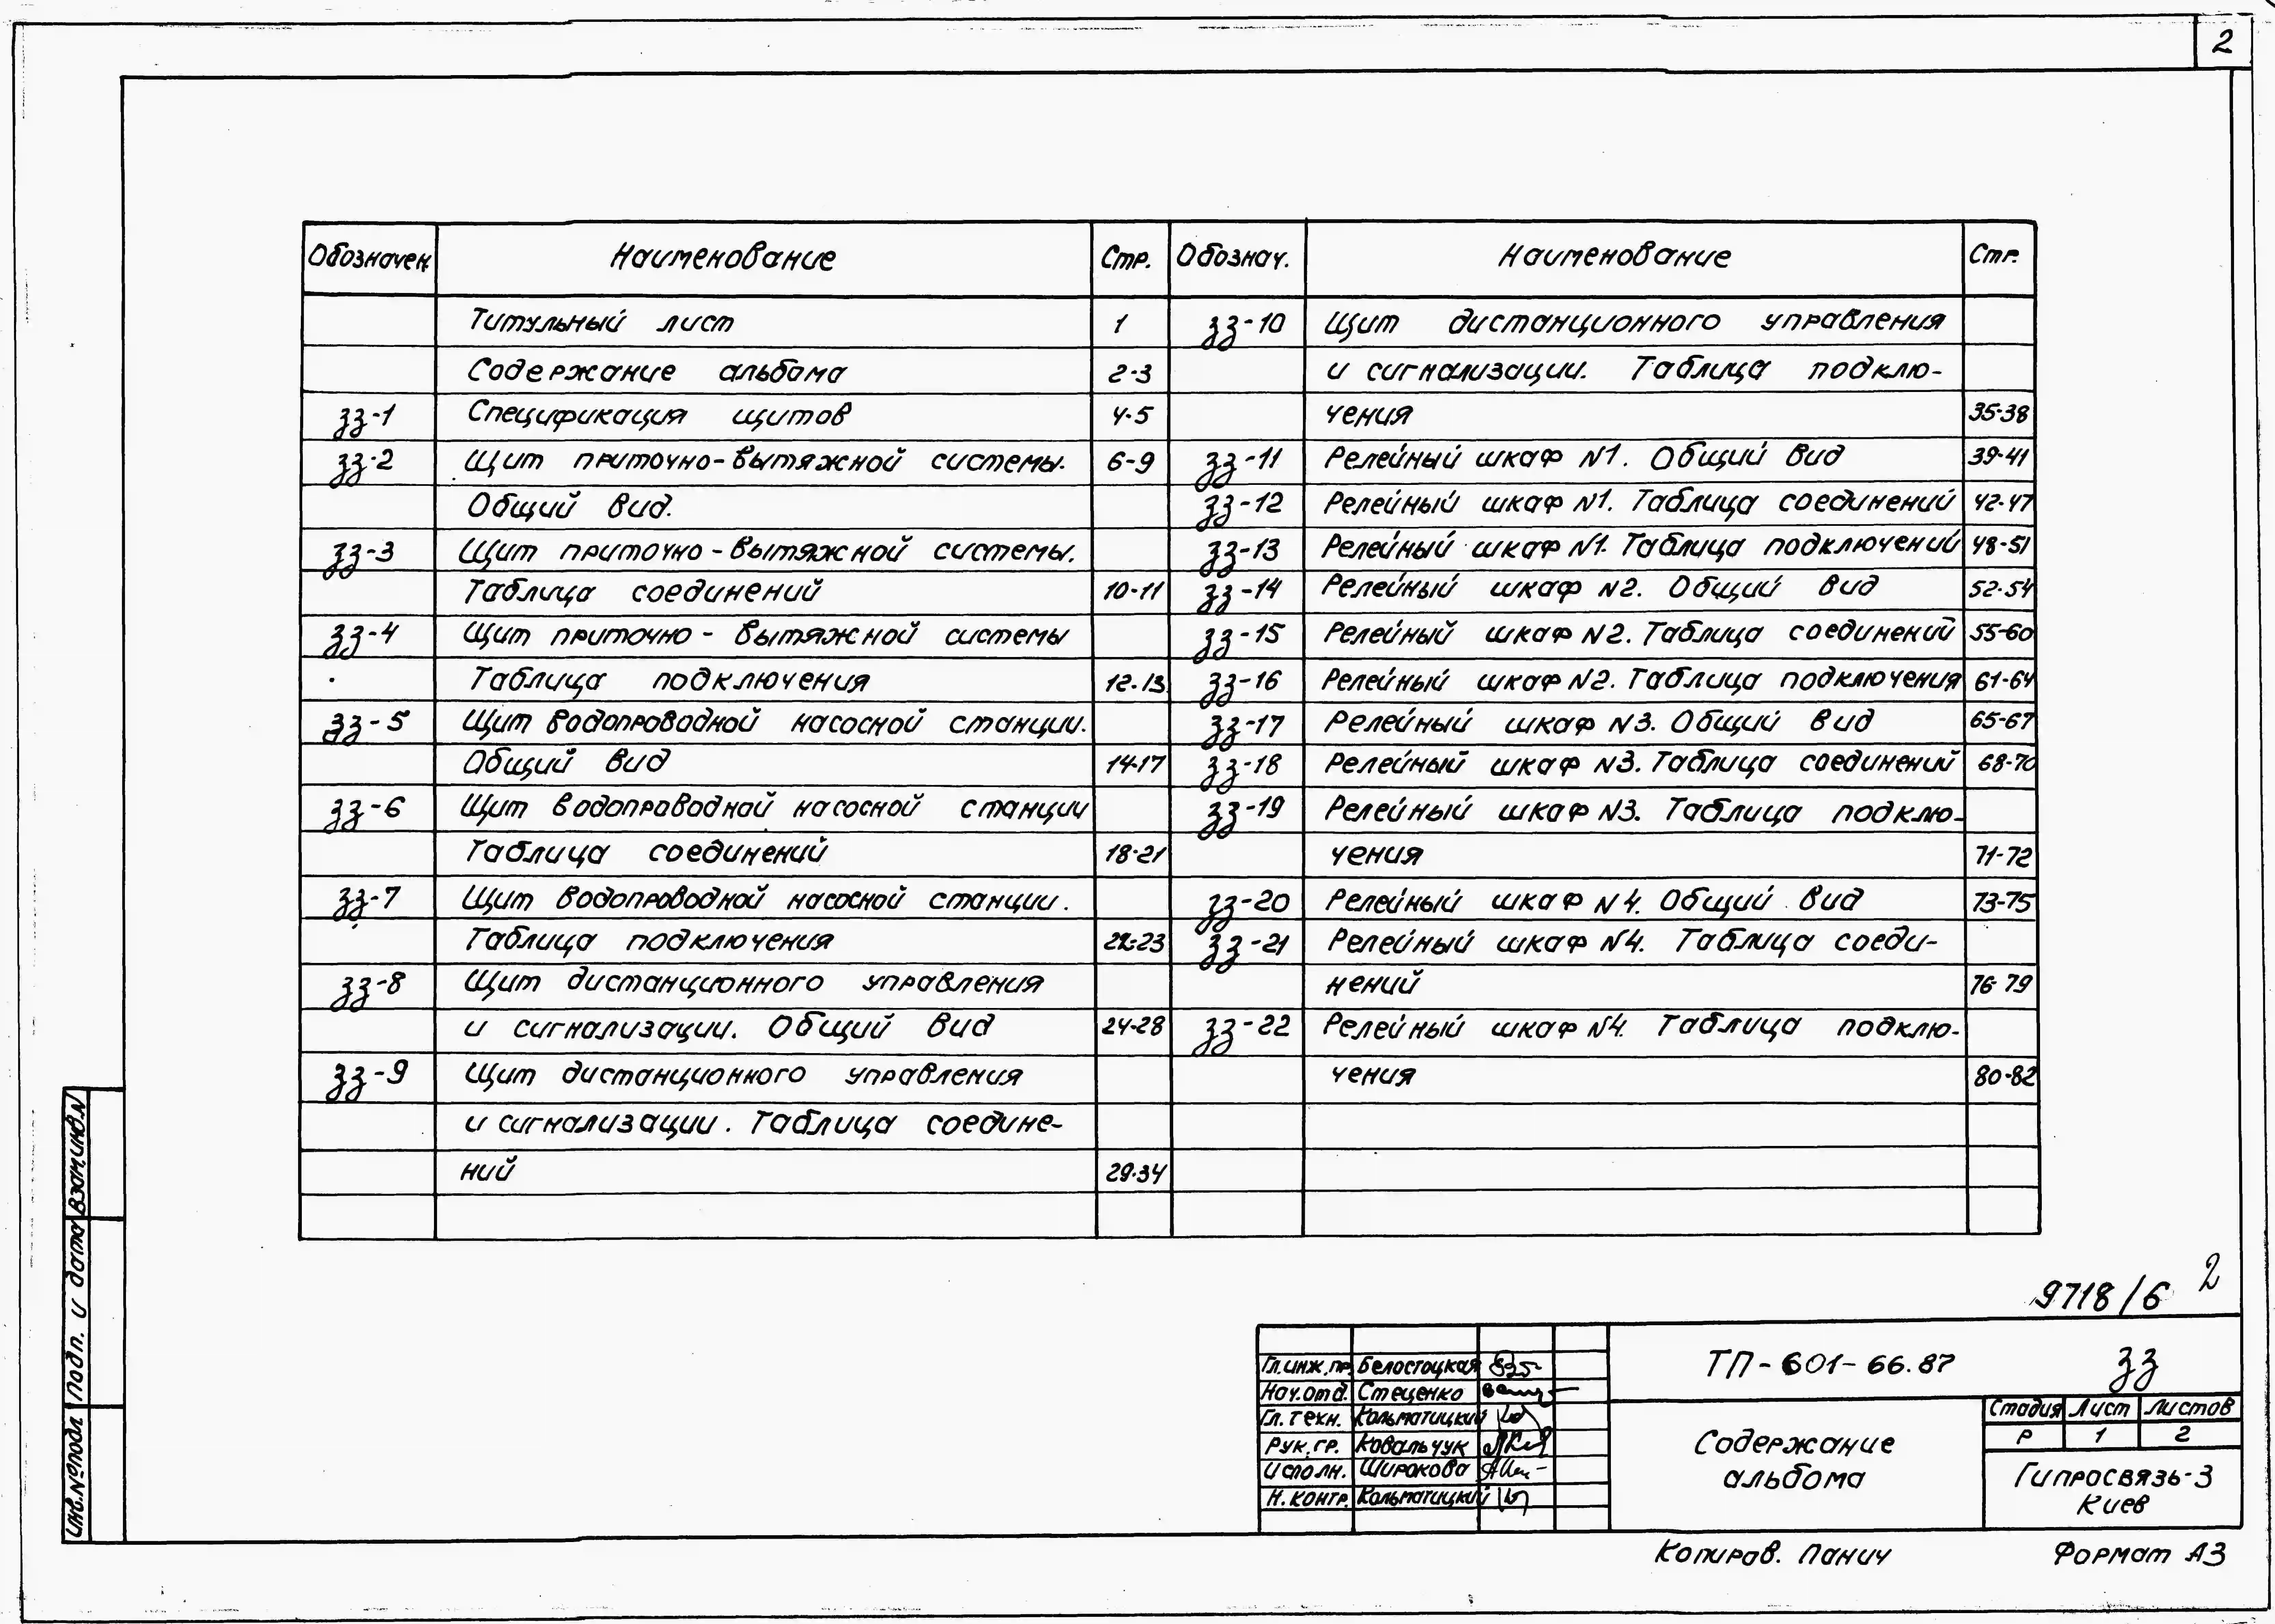 2
Обозначен. Наименование Стр. Обознач. Наименование Стр.
Титульный лист 1
Содержание альбома 2-3
ЗЗ-1 Спецификация щитов 4-5
ЗЗ-2 Щит приточно-вытяжной системы. 6-9
Общий вид.
ЗЗ-3 Щит приточно-вытяжной системы.
Таблица соединений 10-11
ЗЗ-4 Щит приточно-вытяжной системы
Таблица подключения 12-13
ЗЗ-5 Щит водопроводной насосной станции.
Общий вид 14-17
ЗЗ-6 Щит водопроводной насосной станции
Таблица соединений 18-21
ЗЗ-7 Щит водопроводной насосной станции.
Таблица подключения 22-23
ЗЗ-8 Щит дистанционного управления
и сигнализации. Общий вид 24-28
ЗЗ-9 Щит дистанционного управления
и сигнализации. Таблица соедине-
ний 29-34
ЗЗ-10 Щит дистанционного управления
и сигнализации. Таблица подклю-
чения 35-38
ЗЗ-11 Релейный шкаф N1. Общий вид 39-41
ЗЗ-12 Релейный шкаф N1. Таблица соединений 42-47
ЗЗ-13 Релейный шкаф N1. Таблица подключений 48-51
ЗЗ-14 Релейный шкаф N2. Общий вид 52-54
ЗЗ-15 Релейный шкаф N2. Таблица соединений 55-60
ЗЗ-16 Релейный шкаф N2. Таблица подключения 61-64
ЗЗ-17 Релейный шкаф N3. Общий вид 65-67
ЗЗ-18 Релейный шкаф N3. Таблица соединений 68-70
ЗЗ-19 Релейный шкаф N3. Таблица подклю-
чения 71-72
ЗЗ-20 Релейный шкаф N4. Общий вид 73-75
ЗЗ-21 Релейный шкаф N4. Таблица соеди-
нений 76-79
ЗЗ-22 Релейный шкаф N4. Таблица подклю-
чения 80-82
9718/6 2
Гл.инж.пр. Белостоцкая
Нач.отд. Стеценко
Гл.техн. Кольматицкий
Рук.гр. Ковальчук
Исполн. Широкова
Н.контр. Кольматицкий
ТП-601-66.87 ЗЗ
Содержание
альбома
Стадия Лист Листов
Р 1 2
Гипросвязь-3
Киев
Копиров. Панич Формат А3
Инв.№подл Подп. и дата Взам.инв.N